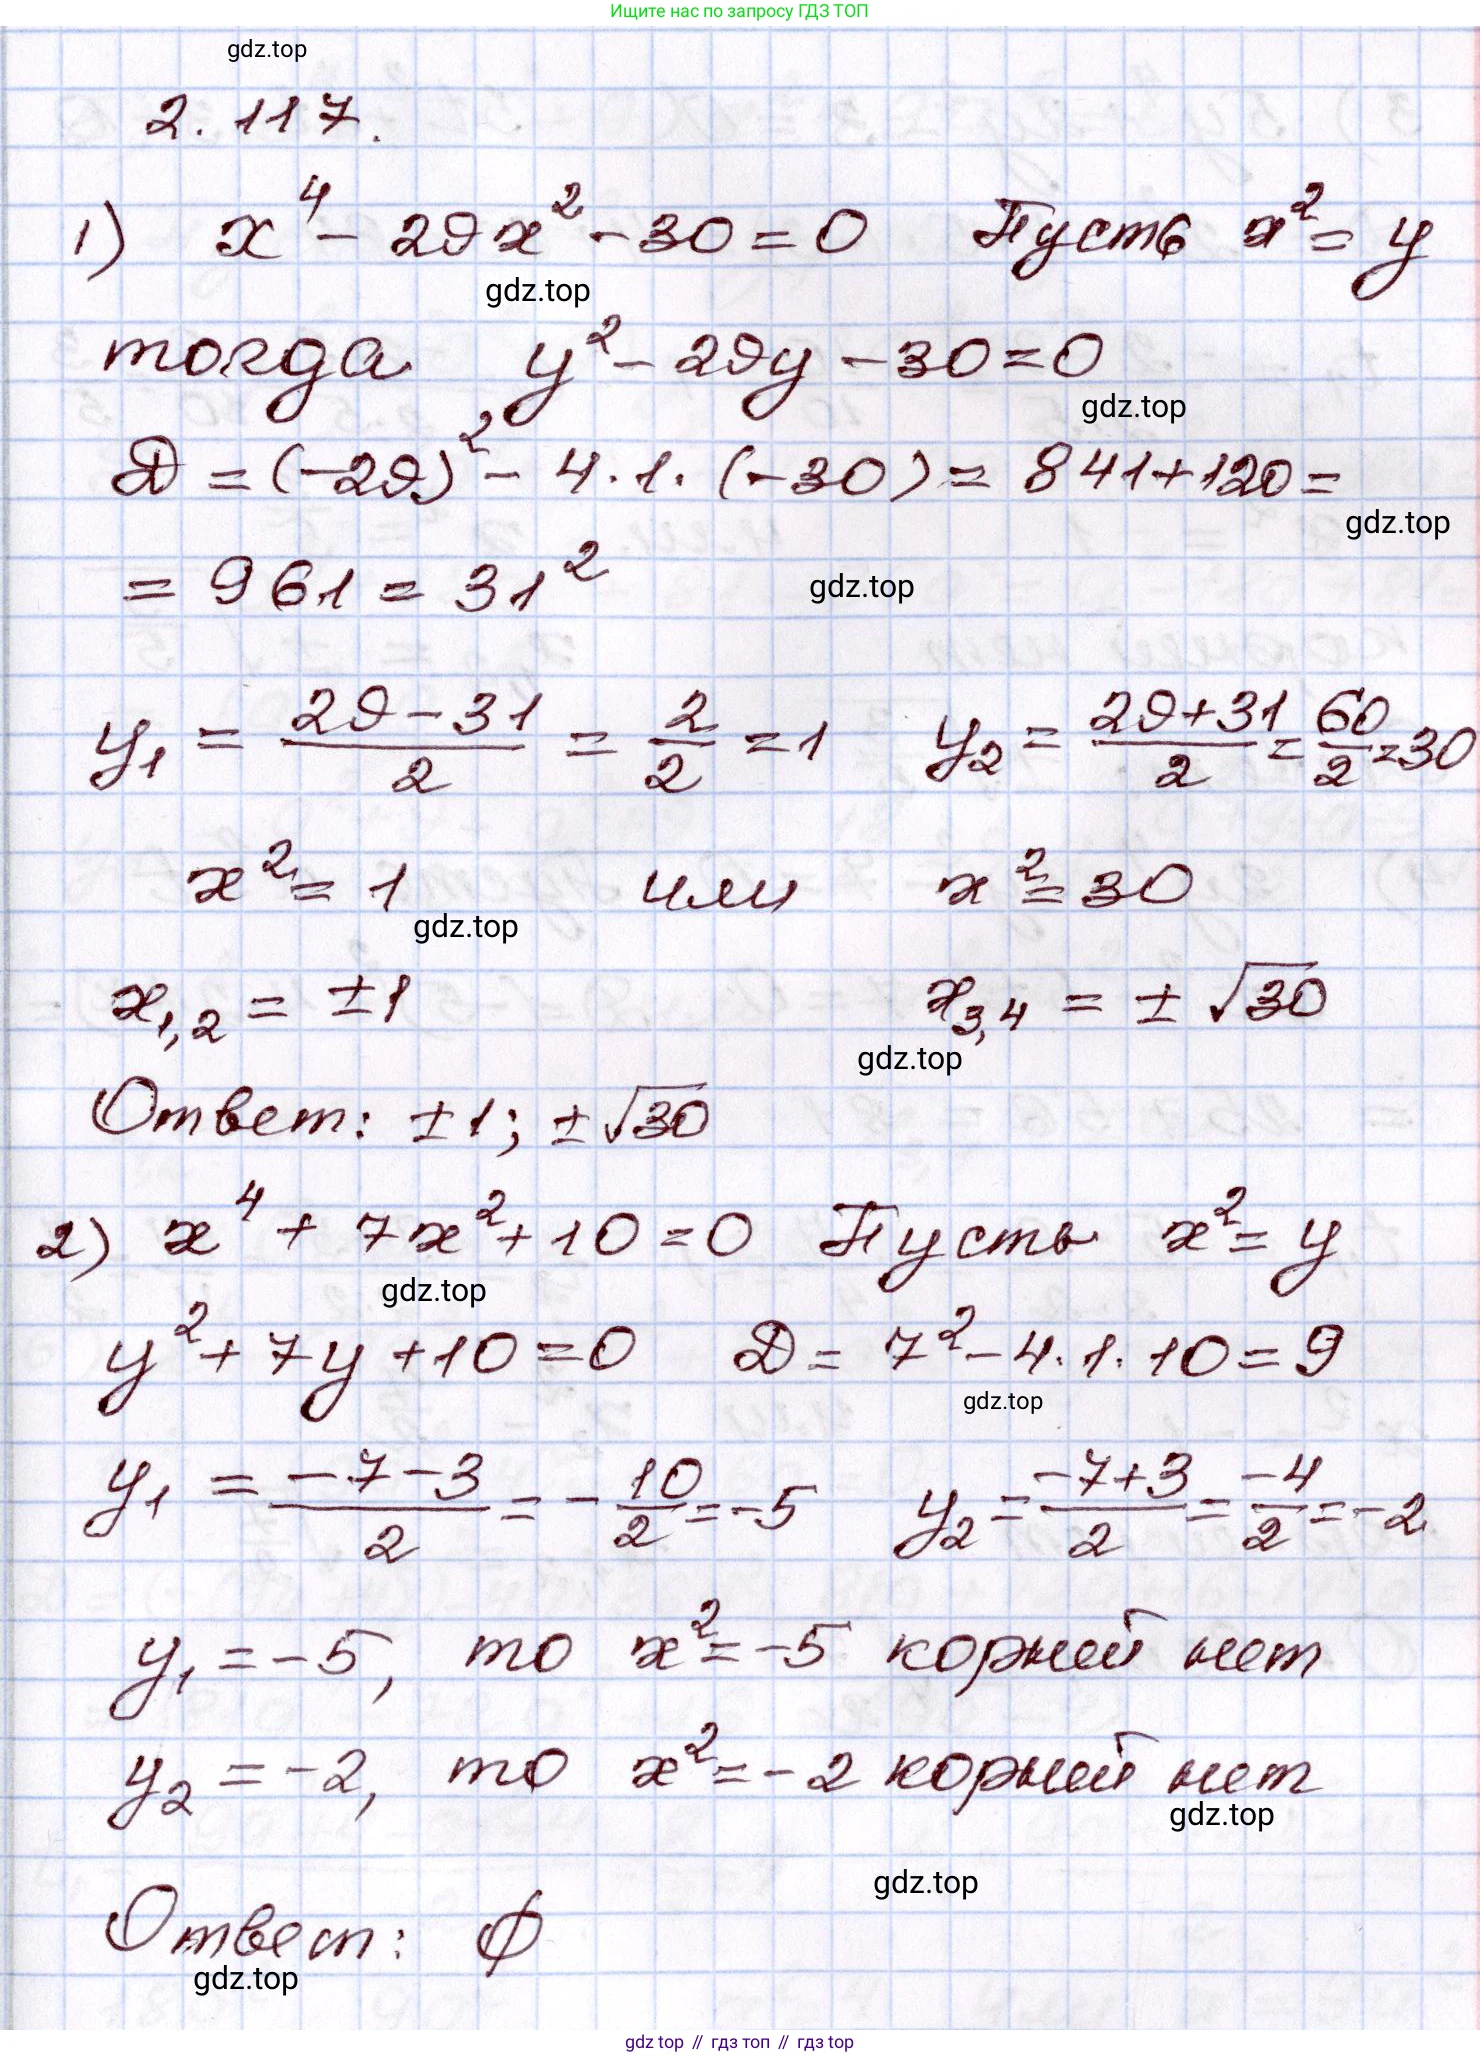 Ищите нас по запросу ГДЗ ТОП
gdz.top
2.117.
1) x⁴ - 29x² - 30 = 0 Пусть x² = y
gdz.top
тогда y² - 29y - 30 = 0
gdz.top
D = (-29)² - 4·1·(-30) = 841 + 120 =
gdz.top
= 961 = 31²
gdz.top
y₁ = (29 - 31)/2 = 2/2 = 1 y₂ = (29 + 31)/2 = 60/2 = 30
x² = 1 или x² = 30
gdz.top
x₁,₂ = ±1 x₃,₄ = ± √30
gdz.top
Ответ: ±1; ±√30
2) x⁴ + 7x² + 10 = 0 Пусть x² = y
gdz.top
y² + 7y + 10 = 0 D = 7² - 4·1·10 = 9
gdz.top
y₁ = (-7 - 3)/2 = -10/2 = -5 y₂ = (-7 + 3)/2 = -4/2 = -2
y₁ = -5, то x² = -5 корней нет
y₂ = -2, то x² = -2 корней нет
gdz.top
gdz.top
Ответ: ∅
gdz.top
gdz.top // гдз топ // гдз top